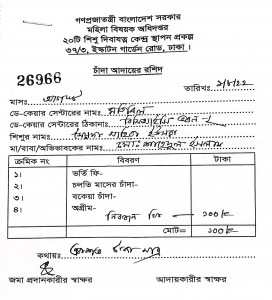 গণপ্রজাতন্ত্রী বাংলাদেশ সরকার
মহিলা বিষয়ক অধিদপ্তর
২০টি শিশু দিবাযত্ন কেন্দ্র স্থাপন প্রকল্প
৩৭/৩, ইস্কাটন গার্ডেন রোড, ঢাকা।
চাঁদা আদায়ের রশিদ
26966
তারিখঃ
মাসঃ
ডে-কেয়ার সেন্টারের নামঃ মতিঝিল
ডে-কেয়ার সেন্টারের ঠিকানাঃ
শিশুর নামঃ
মা/বাবা/অভিভাবকের নামঃ
ক্রমিক নং বিবরণ টাকা
১। ভর্তি ফি-
২। চলতি মাসের চাঁদা-
৩। বকেয়া চাঁদা-
৪। অগ্রীম-
নিবন্ধন ফি ১০০/=
মোট= ১০০/=
কথায়ঃ টাকা মাত্র
জমা প্রদানকারীর স্বাক্ষর আদায়কারীর স্বাক্ষর